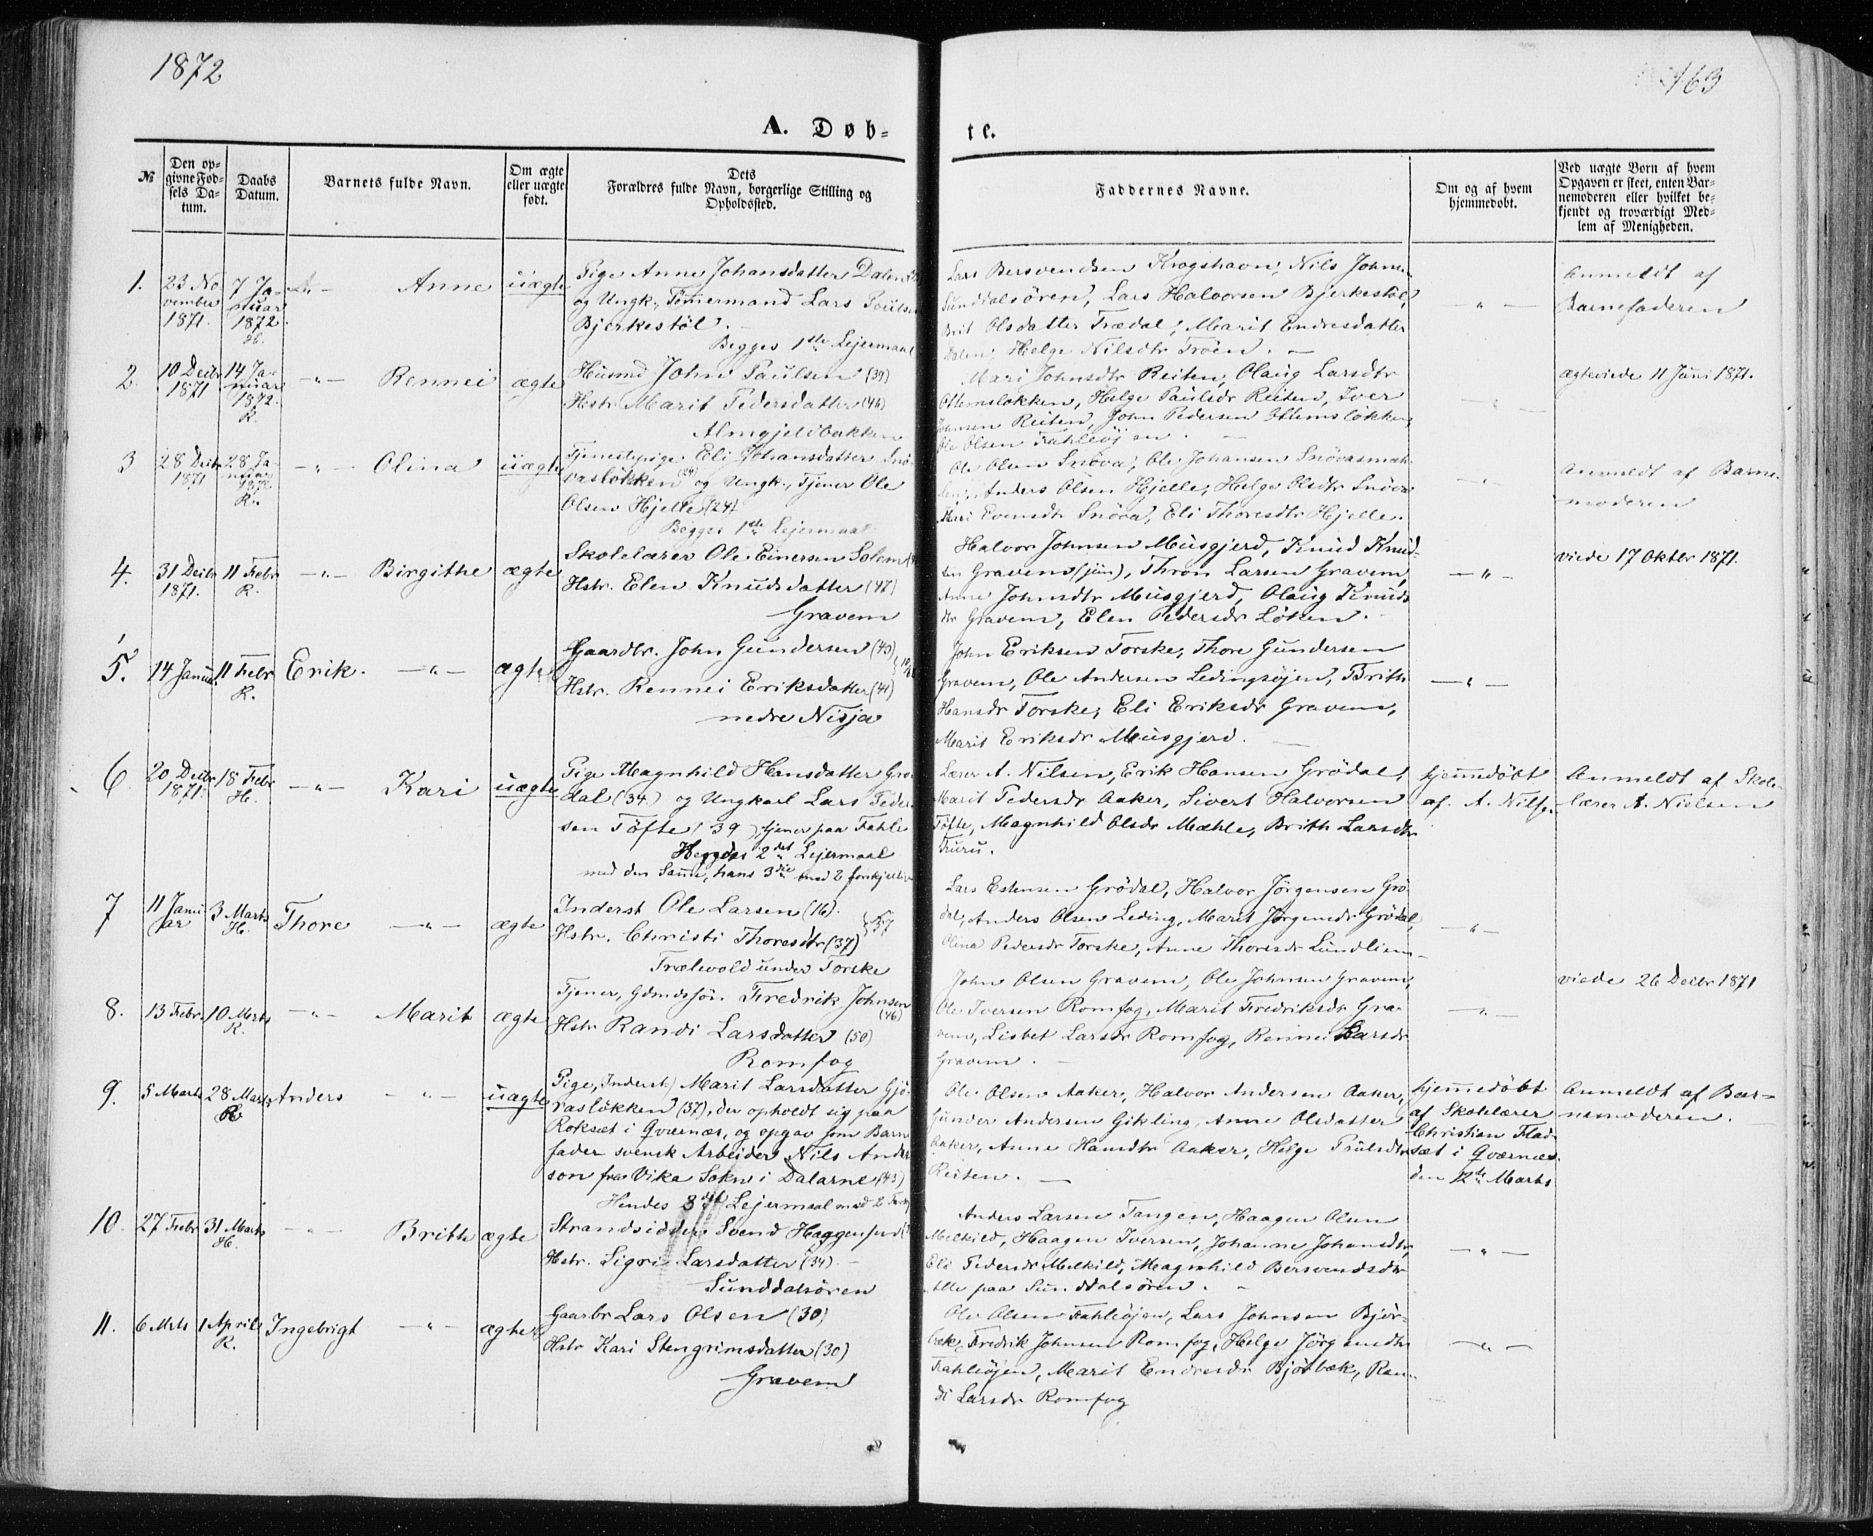 1872
163
A. Døb-
te.
№
Den op-
givne Fød-
sels Da-
tum.
Daabs
Datum.
Barnets fulde Navn.
Om ægte
eller uægte
født.
Dets
Forældres fulde Navn, borgerlige Stilling og
Opholdssted.
Faddernes Navne.
Om og af hvem
hjemmedøbt.
Ved uægte Børn af hvem
Opgaven er skeet, enten Bar-
nemoderen eller hvilket be-
kjendt og troværdigt Med-
lem af Menigheden.
1.
23 No
vember
1871.
7 Ja-
nuar
1872.
H.
Anne
uægte
Pige Anne Johansdatter Dalen
og Ungk. Tømermand Lars Poulsen
Bjerkestöl.
Begges 1ste Lejermaal
Lars Bersvendsen Krogshavn, Nils Johns
Sunddalsören, Lars Halvorsen Bjerkestöl,
Brit Olsdatter Trædal, Marit Endresdatter
Dalen, Helge Nilsdtr Troen. –
– " –
Anmeldt af
Barnefaderen
2.
10 Decbr
1871
14 Ja-
nuar
1872.
R.
– " –
Rennei
ægte
Husmd John Paulsen (39)
Hstr. Marit Pedersdatter (46)
Almgjeldbakken
Mari Johnsdtr Reiten, Olaug Larsdtr
Ottemsløkken, Helge Paulsdr Reiten, Iver
Johnsen Reiten, John Pedersen Ottemsløkken,
Ole Olsen Fahleöjen. –
– " –
ægteviede 11 Juni 1871.
3
28 Decbr
1871
28 Ja-
nuar
1872.
R.
– " –
Olina
uægte
Tjenestepige Eli Johansdatter Snø
vasløkken (29) og Ungk., Tjener Ole
Olsen Hjelle (24)
Begges 1ste Lejermaal
Ole Olsen Snöva, Ole Johansen Snövasmæh-
len, Anders Olsen Hjelle, Helge Olsdtr Snöva
Mari Evensdtr Snöva, Eli Thoresdtr Hjelle.
– " –
Anmeldt af Barne-
moderen
4.
31 Decbr
1871.
11 Febr
R.
– " –
Birgithe
ægte
Skolelærer Ole Einersen Solem
Hstr. Elen Knudsdatter (47)
Gravem
Halvor Johnsen Musgjerd, Knud Knud-
sen Gravem (jun), Thron Larsen Gravem,
Anne Johnsdtr Musgjerd, Olaug Knuds
dtr Gravem, Elen Pedersdr Løken.
– " –
viede 17 Oktbr 1871.
5.
14 Januar
11 Febr
R.
Erik.
– " –
ægte
Gaardbr. John Gundersen (43)
Hstr. Rennei Eriksdatter (41)
nedre Nisja
John Eriksen Torske, Thore Gundersen
Gravem, Ole Andersen Ledingsøjen, Brith
Hansdr Torske, Eli Eriksdr Gravem,
Marit Eriksdr Musgjerd.
– " –
6
20 Decbr
1871.
18 Febr
H.
– " –
Kari
uægte
Pige Magnhild Hansdatter Grö
dal (34) og Ungkarl Lars Peder
sen Töfte (39) tjener paa Fahle
Hendes 2det Lejermaal
med den Samme, hans 3die med 2 forskjellige
Lærer A. Nilsen, Erik Hansen Grödal,
Marit Pedersdr Aaker, Sivert Halvorsen
Töfte, Magnhild Olsdr Mæhle, Brith Larsdtr
Furu.
hjemmedöbt
af A. Nilse.
Anmeldt af Skole-
lærer A. Nielsen
7
11 Janu
ar
3 Marts
H.
Thore
– " –
ægte
Inderst Ole Larsen (16).
Hstr. Christi Thoresdtr (37)
Trælvold under Torske
Lars Estensen Grödal, Halvor Jörgensen Grö
dal, Anders Olsen Leding, Marit Jörgensdr Grödal,
Olina Pedersdr Torske, Anne Thoresdr Lundliem
– " –
8.
13 Febr
10 Marts
R.
– " –
Marit
ægte
Tjener, Gdmdssön Fredrik Johnsen
(46)
Hstr Randi Larsdatter (50)
Romfog
John Olsen Gravem, Ole Johnsen Gravem,
Ole Iversen Romfog, Marit Fredriksdr Gra-
vem, Lisbet Larsdr Romfog, Rennei Larsdr
Gravem. –
– " –
viede 26 Decbr 1871
9.
5 Marts
28 Marts
R.
Anders
– " –
uægte
Pige, (Inderst) Marit Larsdatter Gjö
rasløkken (37), der opholdt sig paa
Roksæt i Qværnæs, og opgav som Barne
fader svensk Arbeider Nils Anders
son fra Vika Sokn i Dalarne (43)
Hendes 3die Lejermaal med 2 Forskj
Ole Olsen Aaker, Halvor Andersen Aaker,
Gunder Andersen Gikling, Anne Olsdatter
Aaker, Anne Hansdtr Aaker, Helge Paulsdtr
Reiten. –
hjemmedöbt
af Skolelærer
Christian Flad-
sæt i Qværnæs
den 12te Marts
Anmeldt af Bar-
nemoderen.
10.
27 Febr
31 Marts
H.
– " –
Brith
ægte
Strandsidder Svend Haggensen
Hstr. Sigri Larsdatter (34) –
Sunddalsören
Anders Larsen Tangen, Haagen Olsen
Melkild, Haagen Iversen, Johanne Johansdtr,
Eli Pedersdr Melkild, Magnhild Bersvendsdtr
Alle paa Sunddalsören. –
– " –
11.
6 Mrts
1 April
R.
Ingebrigt
– " –
ægte
Gaarbr Lars Olsen (30)
Hstr Kari Stengrimsdatter (30)
Gravem
Ole Olsen Fahleöjen, Lars Johnsen Björ-
bæk, Fredrik Johnsen Romfog, Helge Jörgensdtr
Fahleöjen, Marit Endresdr Bjørbæk, Ran-
di Larsdr Romfog
– " –